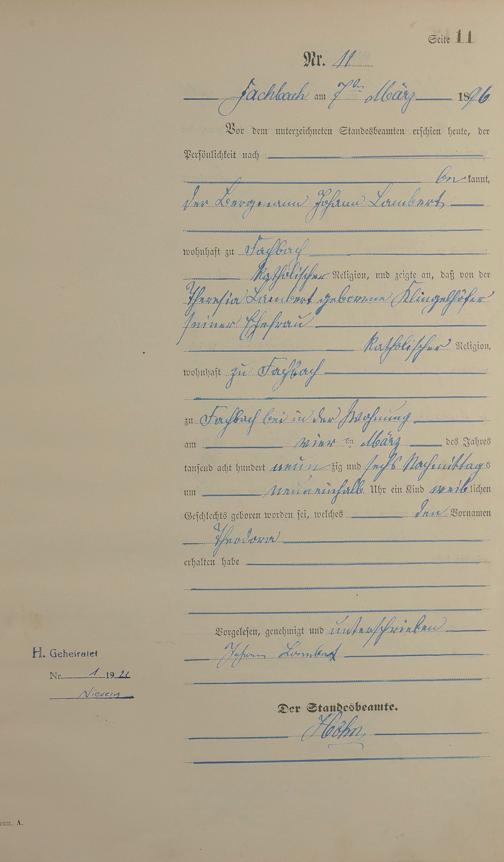 Seite 11
Nr. 11
Fachbach am 7ten März 1896
Vor dem unterzeichneten Standesbeamten erschien heute, der
Persönlichkeit nach
be kannt,
der Bergmann Johann Lambert
wohnhaft zu Fachbach
katholischer Religion, und zeigte an, daß von der
Theresia Lambert geborene Klingelhöfer
seiner Ehefrau
katholischer Religion,
wohnhaft zu Fachbach
zu Fachbach bei in der Wohnung
am vier ten März des Jahres
tausend acht hundert neun zig und sechs Nachmittags
um neuneinhalb Uhr ein Kind weib lichen
Geschlechts geboren worden sei, welches den Vornamen
Theodora
erhalten habe
Vorgelesen, genehmigt und unterschrieben
Johann Lambert
H. Geheiratet
Nr. 1 1921
Nievern
Der Standesbeamte.
Höhn
A.